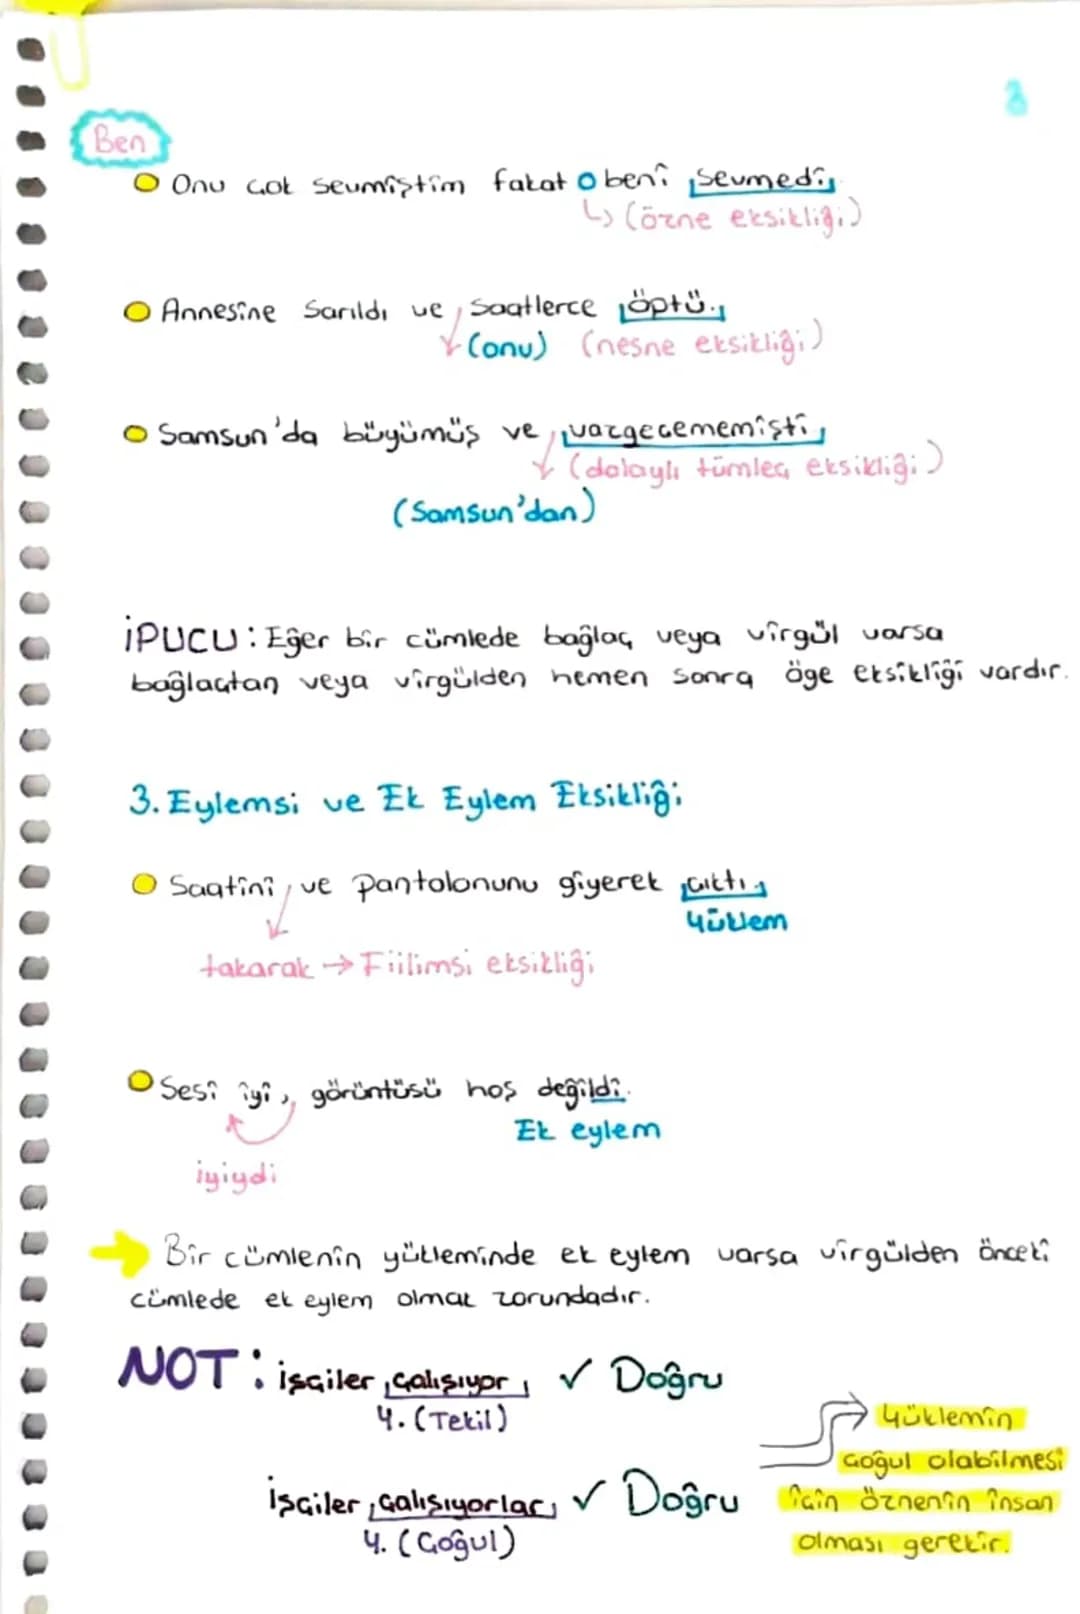 Ben
Onu çok sevmiştim fakat o beni sevmedi.
↳ (özne eksikliği)
Annesine sarıldı ve saatlerce öptü.
(onu) (nesne eksikliği)
Samsun'da büyümüş ve vazgeçememişti
(dolaylı tümleç eksikliği)
(Samsun'dan)
İPUCU: Eğer bir cümlede bağlaç veya virgül varsa
bağlaçtan veya virgülden hemen sonra öge eksikliği vardır.
3. Eylemsi ve Ek Eylem Eksikliği
Saatini ve pantolonunu giyerek çıktı.
yüklem
takarak → Fiilimsi eksikliği
Sesi iyi, görüntüsü hoş değildi.
Ek eylem
iyiydi
Bir cümlenin yükleminde ek eylem varsa virgülden önceki
cümlede ek eylem olmak zorundadır.
NOT: işçiler çalışıyor ✓ Doğru
Y. (Tekil)
Yüklemin
çoğul olabilmesi
işçiler çalışıyorlar ✓ Doğru
için öznenin insan
Y. (Çoğul)
olması gerekir.